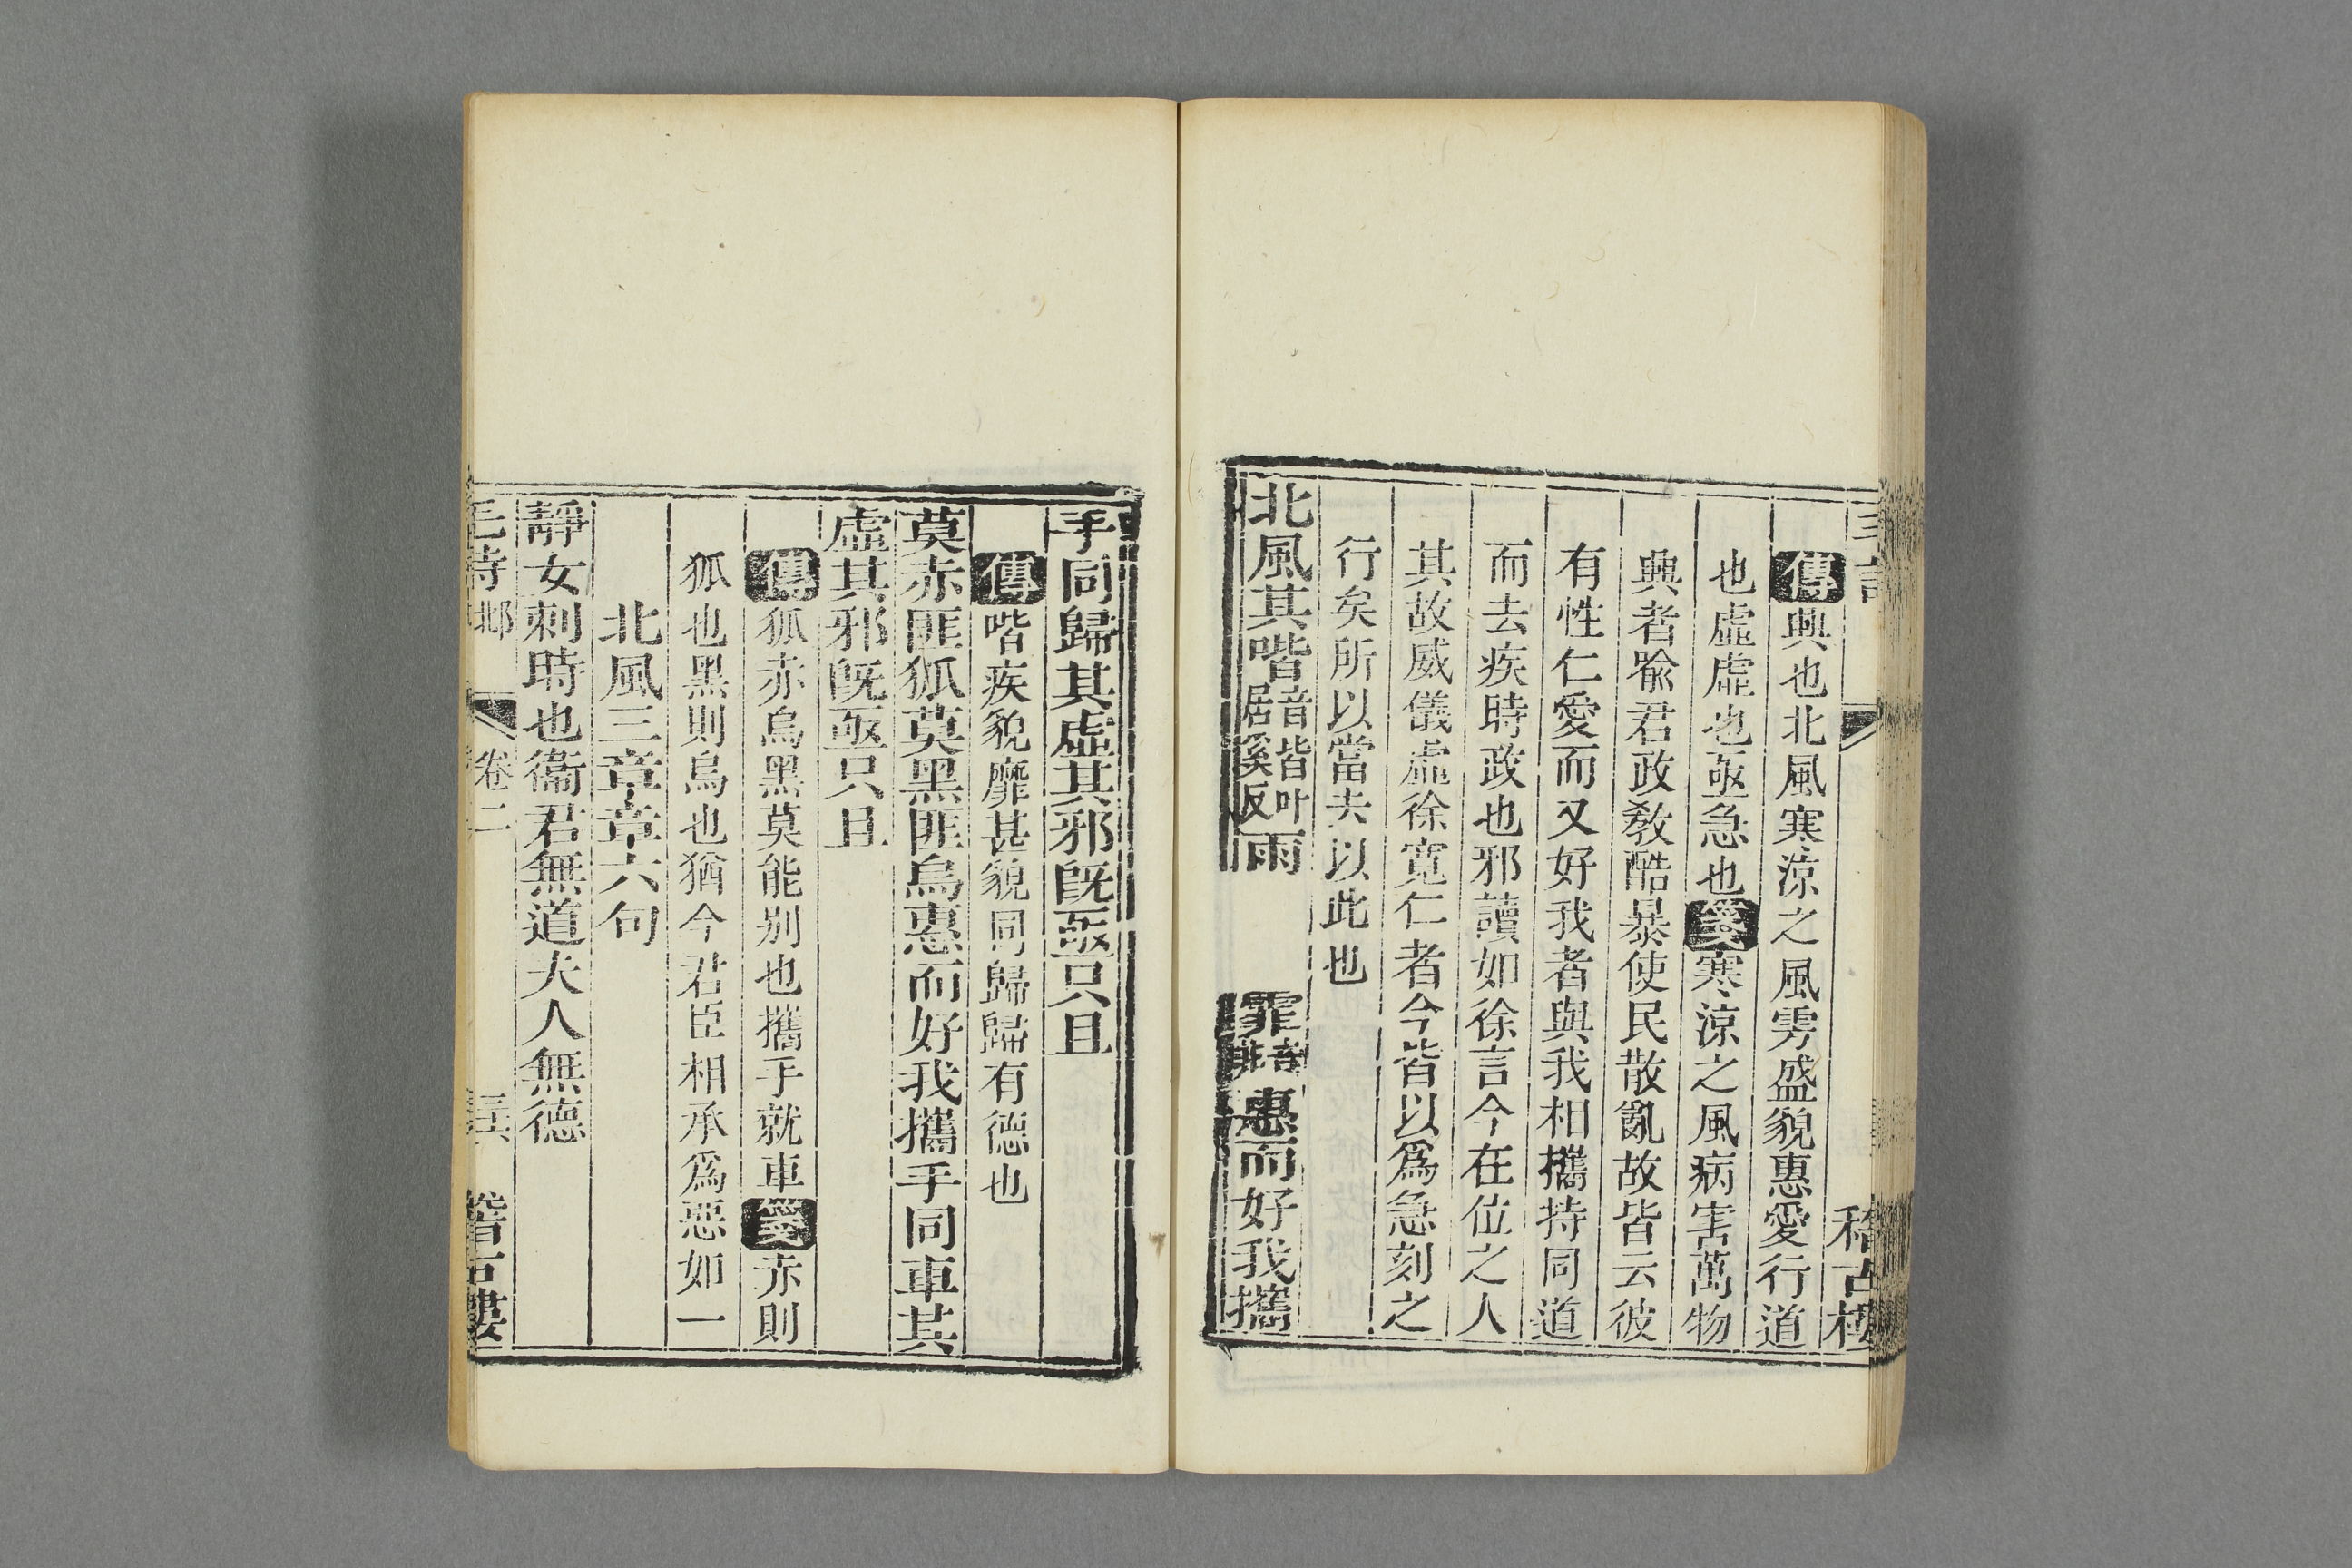 傳興也北風寒涼之風雱盛貌惠愛行道
也虛虛也亟急也箋寒涼之風病害萬物
興者喻君政教酷暴使民散亂故皆云彼
有性仁愛而又好我者與我相攜持同道
而去疾時政也邪讀如徐言今在位之人
其故威儀虛徐寬仁者今皆以爲急刻之
行矣所以當去以此也
北風其喈音皆叶居奚反雨
霏
惠而好我攜
稽古樓
手同歸其虛其邪旣亟只且
傳喈疾貌霏甚貌同歸歸有德也
莫赤匪狐莫黑匪烏惠而好我攜手同車其
虛其邪旣亟只且
傳狐赤烏黑莫能别也攜手就車箋赤則
狐也黑則烏也猶今君臣相承爲惡如一
北風三章章六句
靜女刺時也衞君無道夫人無德
毛詩 邶 卷二 稽古樓